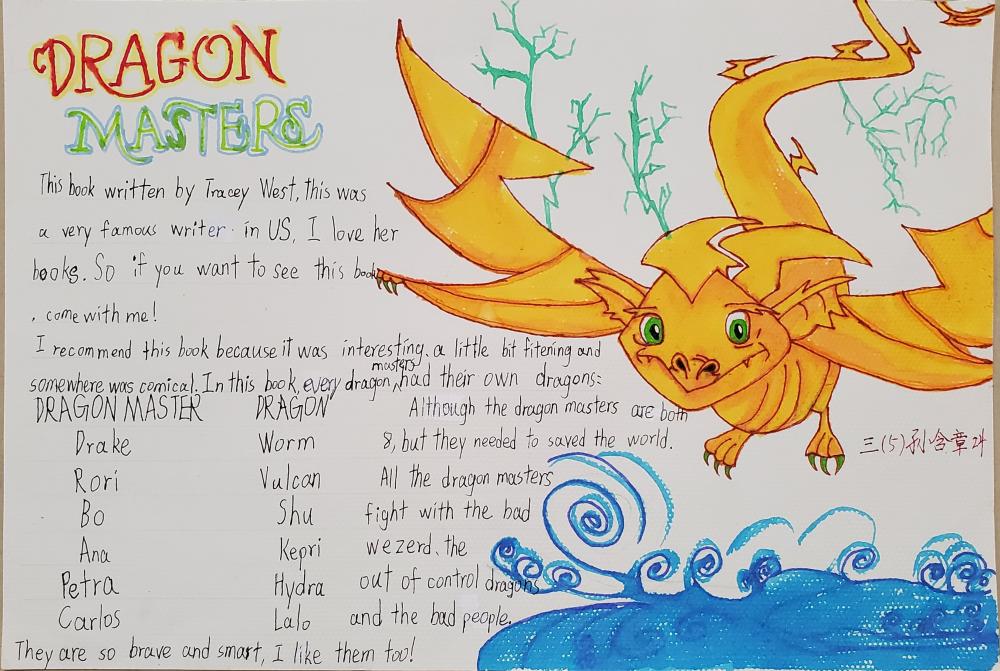 DRAGON
MASTERS
This book written by Tracey West, this was
a very famous writer in US, I love her
books. So if you want to see this book
, come with me!
I recommend this book because it was interesting, a little bit fitening and
somewhere was comical. In this book, every dragon masters had their own dragons:
DRAGON MASTER DRAGON
Drake Worm
Rori Vulcan
Bo Shu
Ana Kepri
Petra Hydra
Carlos Lalo
Although the dragon masters are both
8, but they needed to saved the world.
All the dragon masters
fight with the bad
wezerd, the
out of control dragons
and the bad people.
They are so brave and smart, I like them too!
三(5)孙含章24